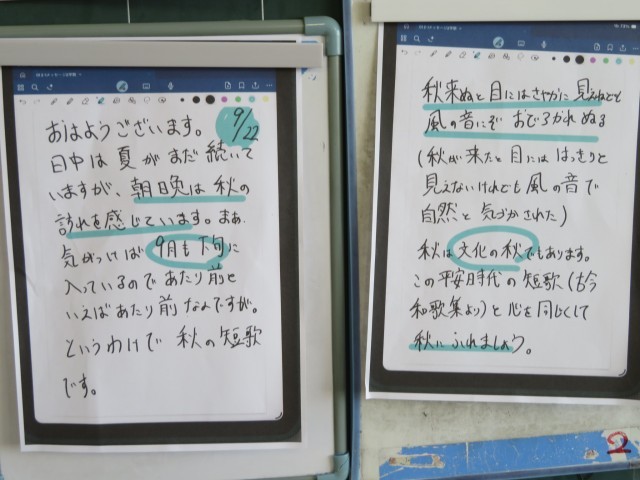 おはようございます。
9/22
日中は夏がまだ続いて
いますが、朝日晩は秋の
訪れを感じています。まぁ、
気がつけば9月も下旬に
入っているのであたり前と
いえばあたり前なんですが。
というわけで秋の短歌
です。
秋来ぬと目にはさやかに見えねども
風の音にぞおどろかれぬる
(秋が来たと目にははっきりと
見えないけれども風の音で
自然と気づかされた)
秋は文化の秋でもあります。
この平安時代の短歌(古今
和歌集より)と心を同じくして
秋にふれましょう。
2